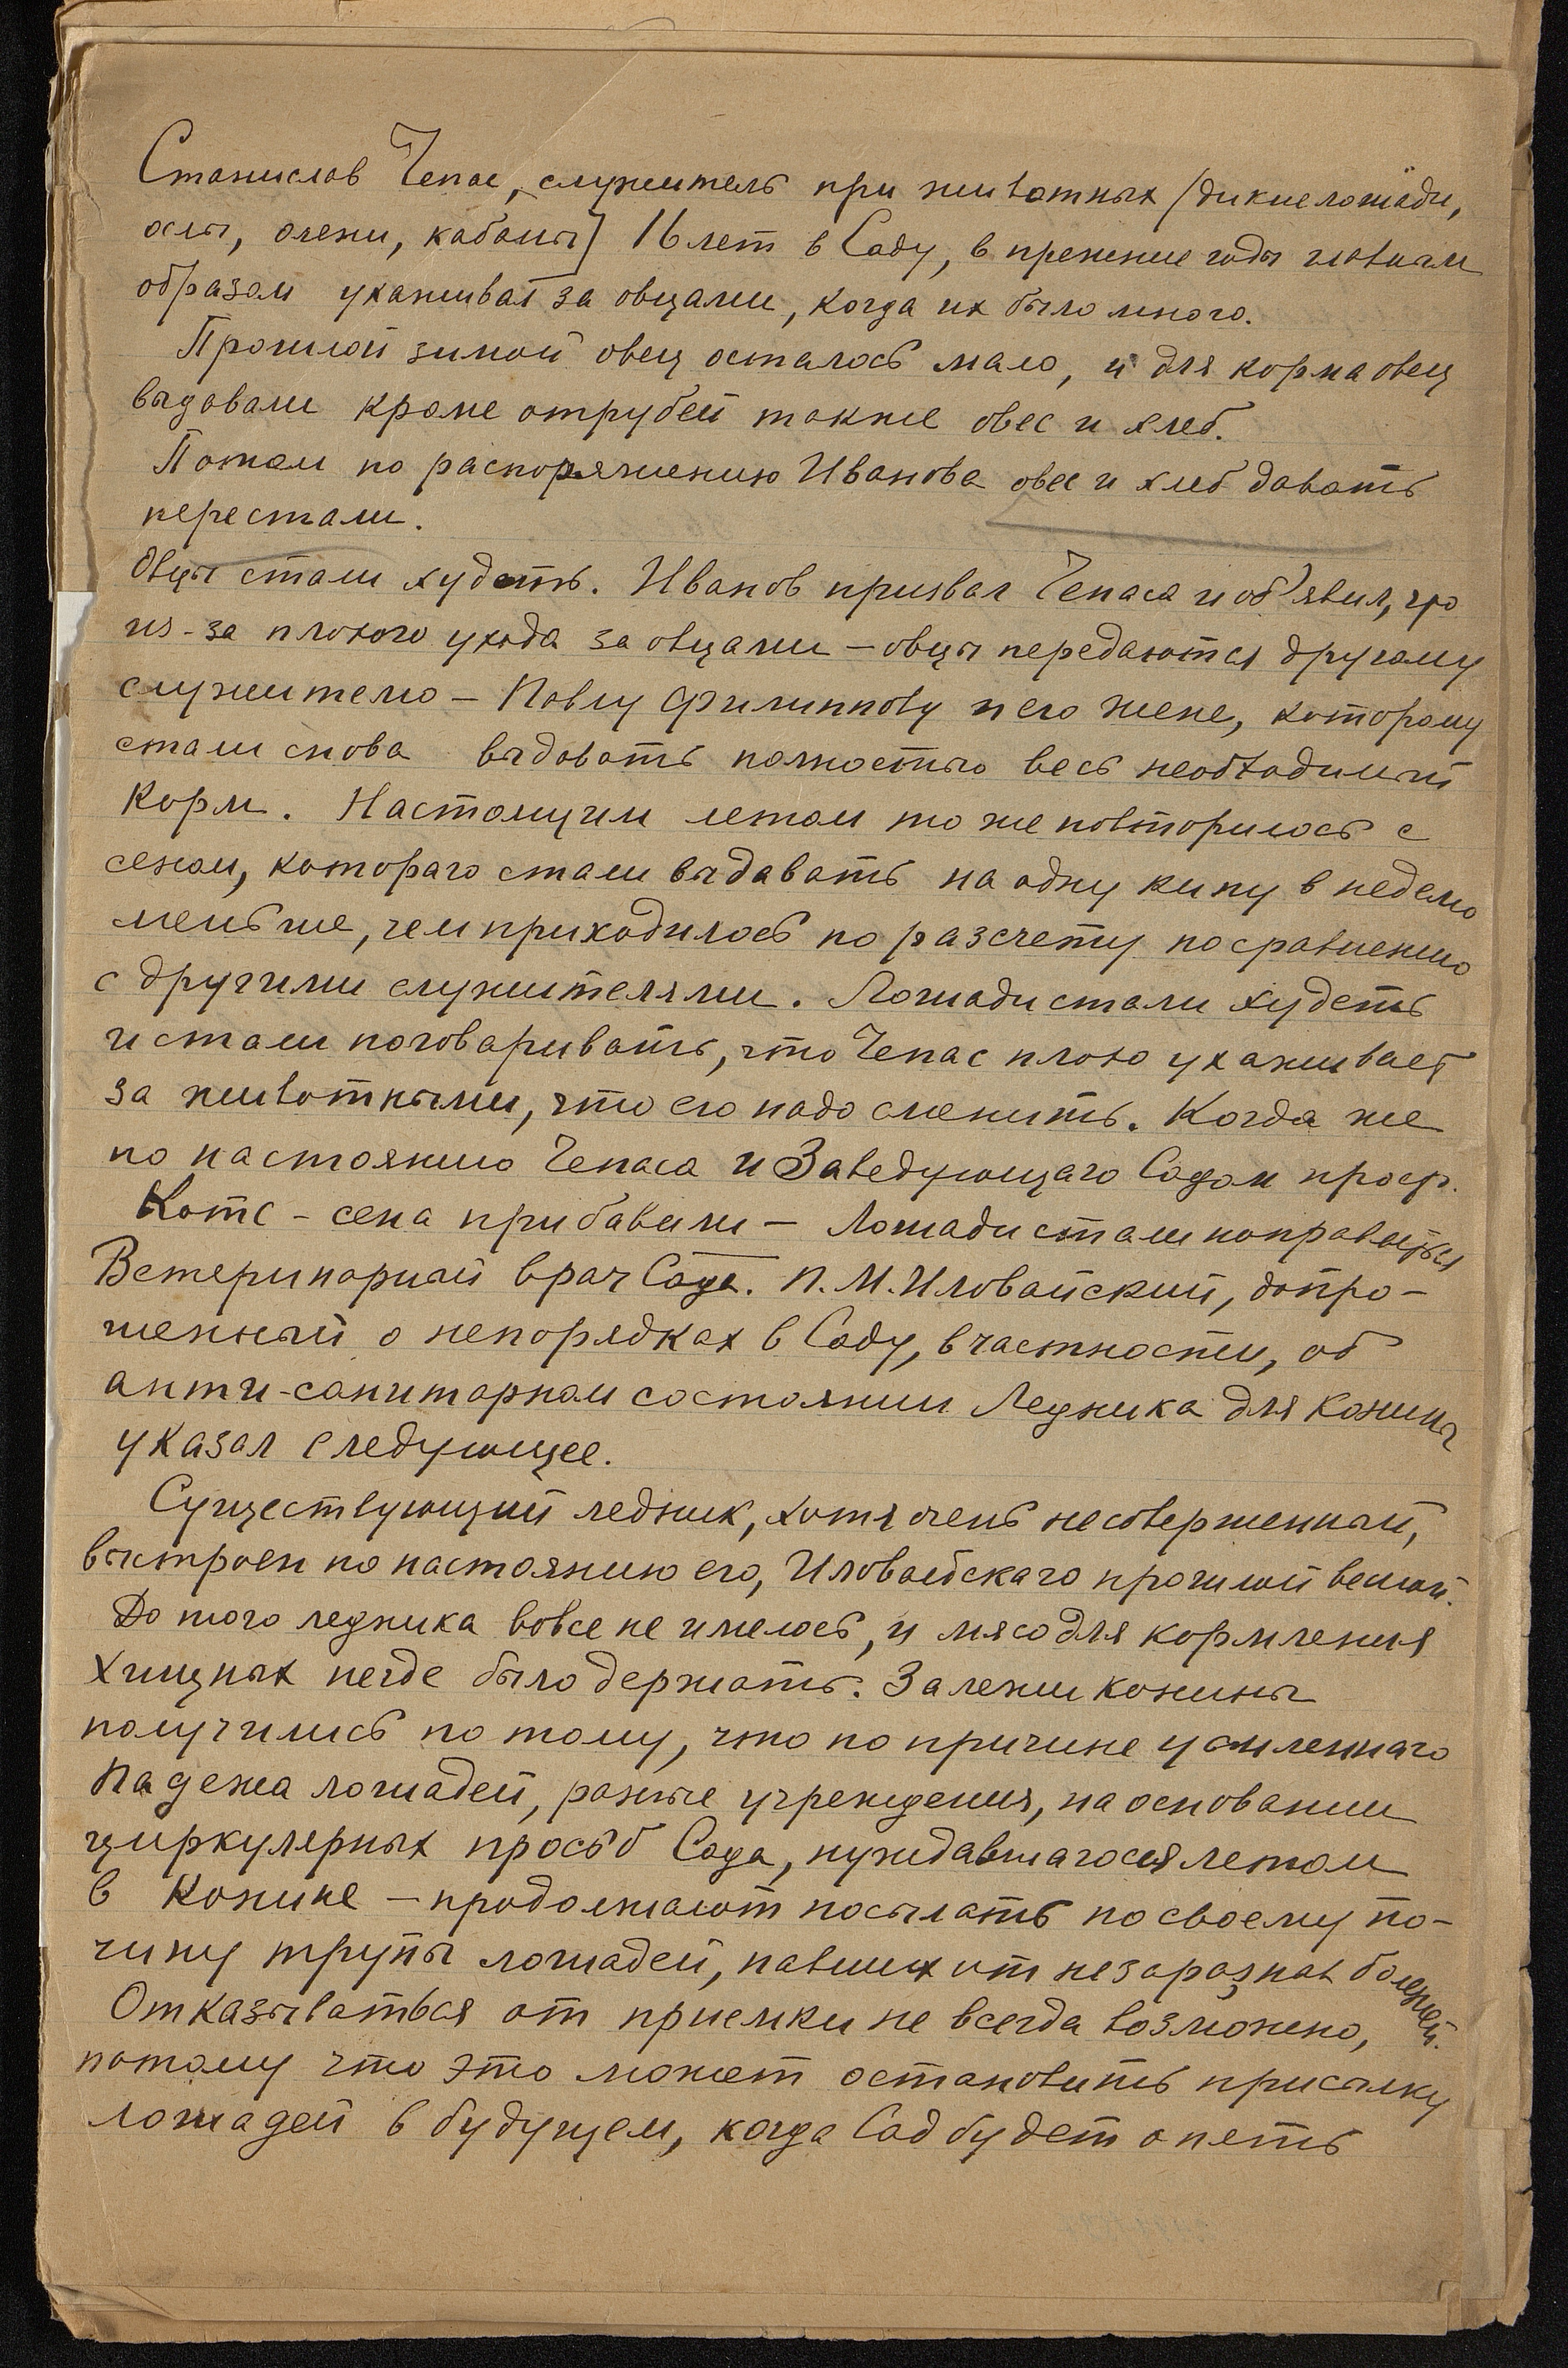 Станислав Чепас, служитель при животных /дикие лошади,
ослы, олени, кабаны/ 16 лет в Саду, в прежние годы главным
образом ухаживал за овцами, когда их было много.
Прошлой зимой овец осталось мало, и для корма овец
выдавали кроме отрубей также овес и хлеб.
Потом по распоряжению Иванова овес и хлеб давать
перестали.
Овцы стали худеть. Иванов призвал Чепаса и об'явил, что
из-за плохого ухода за овцами – овцы передаются другому
служителю – Павлу Филиппову и его жене, которому
стали снова выдавать полностью весь необходимый
корм. Настоящим летом то же повторилось с
сеном, котораго стали выдавать на одну кипу в неделю
меньше, чем приходилось по разсчету по сравнению
с другими служителями. Лошади стали худеть
и стали поговаривать, что Чепас плохо ухаживает
за животными, что его надо сменить. Когда же
по настоянию Чепаса и Заведующаго Садом проф.
Котс – сена прибавили – лошади стали поправляться
Ветеринарный врач Сада. П.М. Иловайский, допро-
шенный о непорядках в Саду, в частности, об
анти-санитарном состоянии Ледника для конины
указал следующее.
Существующий ледник, хотя очень несовершенный,
выстроен по настоянию его, Иловайскаго прошлой весной.
До того ледника вовсе не имелось, и мясо для кормления
хищных негде было держать. Залежи конины
получились по тому, что по причине усиленнаго
падежа лошадей, разные учреждения, на основании
циркулярных просьб Сада, нуждавшагося летом
в конине – продолжают посылать по своему по-
чину трупы лошадей, павших от незаразных болезней.
Отказываться от приемки не всегда возможно,
потому что это может остановить присылку
лошадей в будущем, когда Сад будет опять